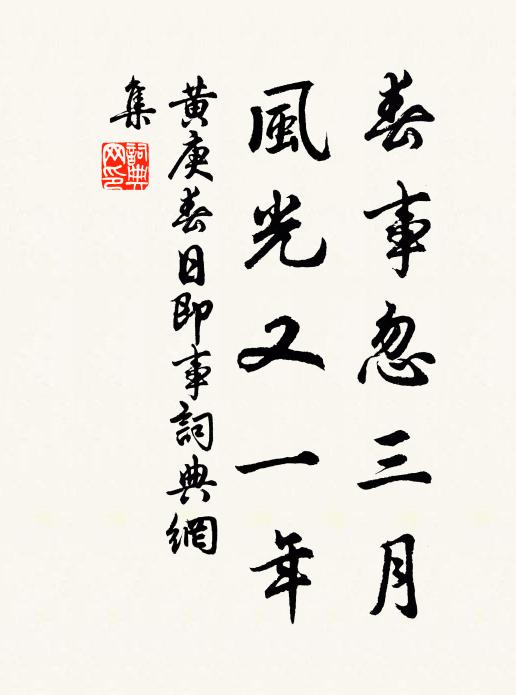 春事忽三月
風光又一年
黄庚春日即事詞典網
集
詞典
网印